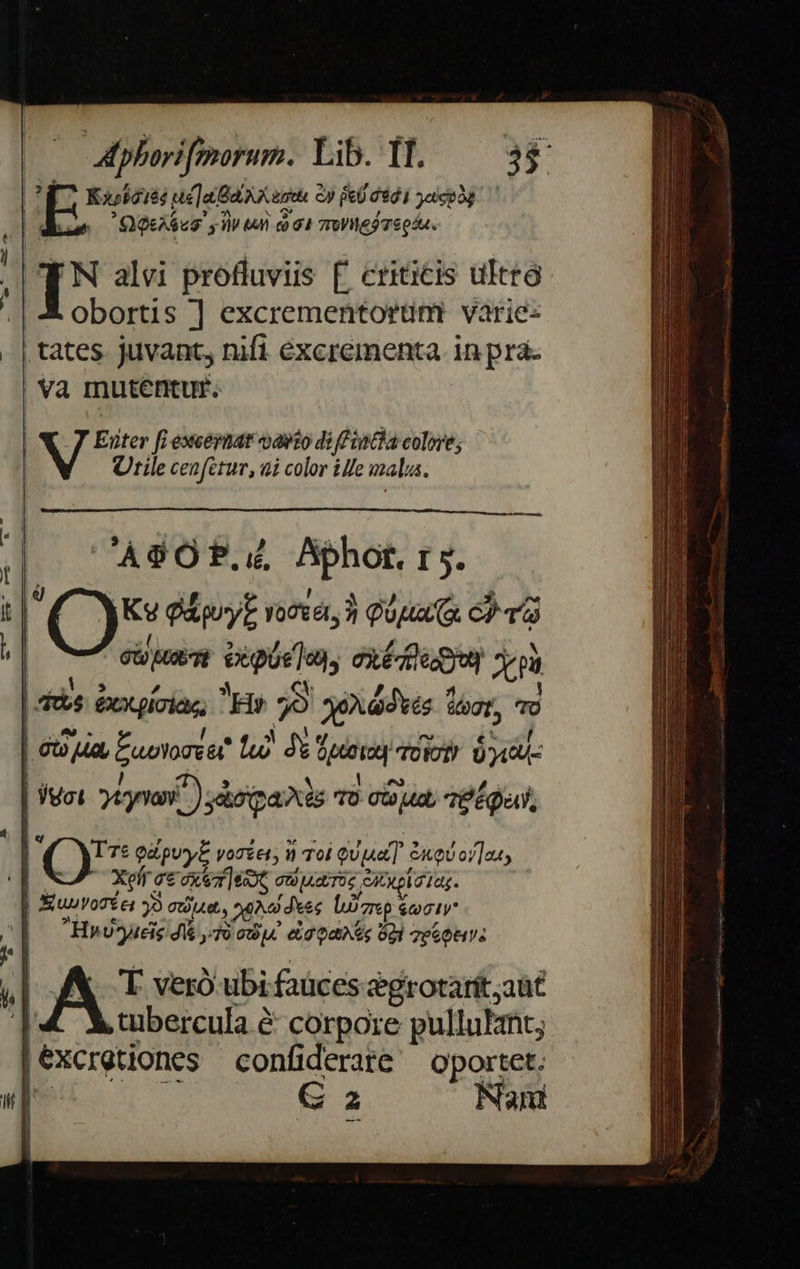 Aphorismorum. Lib. II. 35
Ἐκκρίσιες μεταβάλλεσαι ἐν ῥεύσεσι γαςρὸς
Ὠφελέεσ', ἢν μὴ ὦσι πονηρότεραι.
IN alvi profluviis [ criticis ultrò
obortis ] excrementorum varie-
tates juvant, nisi excrementa in pra-
va mutentur.
VEnter si excernat vario distincta colore,
Utile censetur, ni color ille malus.
ἈΦΟΡ. ιέ, Aphor. 15.
ὍΚου φάρυγξ νοσέει, ἢ φύματα ἐν τῷ
σώματι ἐκφύεται, σκέπτεσθαι χρὴ
τὰς ἐκκρίσιας, Ἢν γὸ χολώδεες ἔωσι, τὸ
σῶμα ξυννοσέει· ἢν δὲ ὅμοιαι τοῖσιν ὑγιαί-
νουσι γίγνωνται, ἀσφαλὲς τὸ σῶμα τρέφειν.
ὍΤτε φάρυγξ νοσέει, ἢ τοι φύματ' ἐκφύονται,
Χρή σε σκέπτεσθαι σώματος ἐκκρίσιας.
Ξυννοσέει γὸ σῶμα, χολώδεες ἤνπερ ἔωσιν·
Ἢν ὑγιεῖς δὲ, τὸ σῶμ' ἀσφαλὲς ὅτι τρέφειν.
AT verò ubi fauces ægrotant, aut
tubercula è corpore pullulant,
excretiones considerare oportet.
G 2 Nam